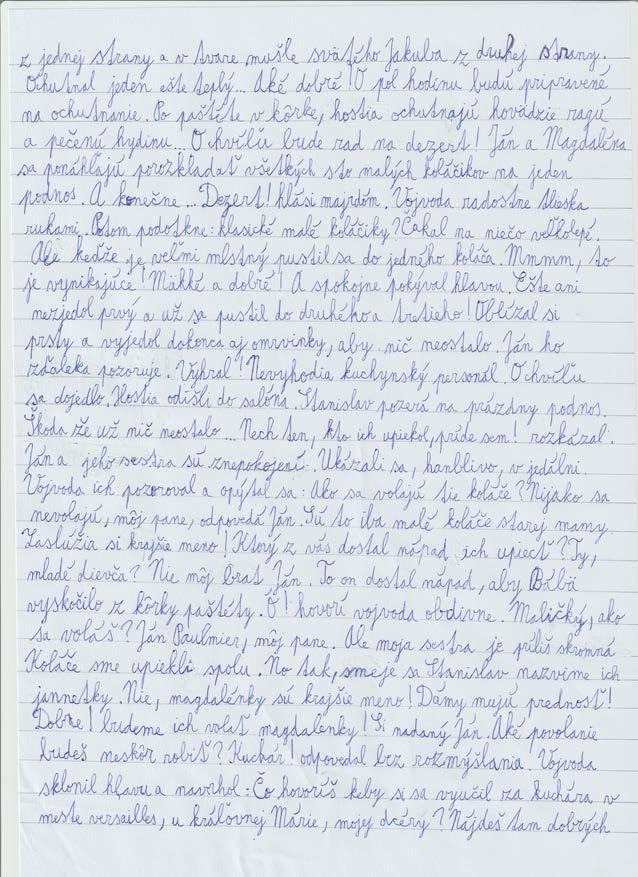 z jednej strany a v tvare mušle svätého Jakuba z druhej strany.
Ochutnal jeden ešte teplý... Aké dobré! O pol hodinu budú pripravené
na ochutnanie. Po paštéte v kôrke, hostia ochutnajú hovädzie ragú
a pečenú hydinu... O chvíľu bude rad na dezert! Ján a Magdaléna
sa ponáhľajú porozkladať všetkých sto malých koláčikov na jeden
podnos. A konečne... Dezert! hlási majrdóm. Vojvoda radostne tlieska
rukami. Potom podotkne: klasické malé koláčiky? Čakal na niečo veľkolepé.
Ale keďže je veľmi mlstný pustil sa do jedného koláča. Mmmm, to
je vynikajúce! Mäkké a dobré! A spokojne pokýval hlavou. Ešte ani
nezjedol prvý a už sa pustil do druhého a tretieho! Oblízal si
prsty a vyjedol dokonca aj omrvinky, aby nič neostalo. Ján ho
zďaleka pozoruje. Vyhral! Nevyhodia kuchynský personál. O chvíľu
sa dojedlo. Hostia odišli do salóna. Stanislav pozerá na prázdny podnos.
Škoda že už nič neostalo... Nech ten, kto ich upiekol, príde sem! rozkázal.
Ján a jeho sestra sú znepokojení. Ukázali sa, hanblivo, v jedálni.
Vojvoda ich pozoroval a opýtal sa: Ako sa volajú tie koláče? Nijako sa
nevolajú, môj pane, odpovedá Ján. Sú to iba malé koláče starej mamy.
Zaslúžia si krajšie meno! Ktorý z vás dostal nápad ich upiecť? Ty,
mladé dievča? Nie môj brat Ján. To on dostal nápad, aby Bábä
vyskočilo z kôrky paštéty. Ó! hovorí vojvoda obdivne. Maličký, ako
sa voláš? Ján Paulmier, môj pane. Ale moja sestra je príliš skromná
Koláče sme upiekli spolu. No tak, smeje sa Stanislav nazvime ich
jannetky. Nie, magdalénky sú krajšie meno! Dámy mujú prednosť!
Dobre! budeme ich volať magdalénky! Si nadaný Ján. Aké povolanie
budeš neskôr robiť? Kuchár! odpovedal bez rozmýšľania. Vojvoda
sklonil hlavu a navrhol: Čo hovoríš keby si sa vyučil za kuchára v
meste versailles, u kráľovnej Márie, mojej dcéry? Nájdeš tam dobrých